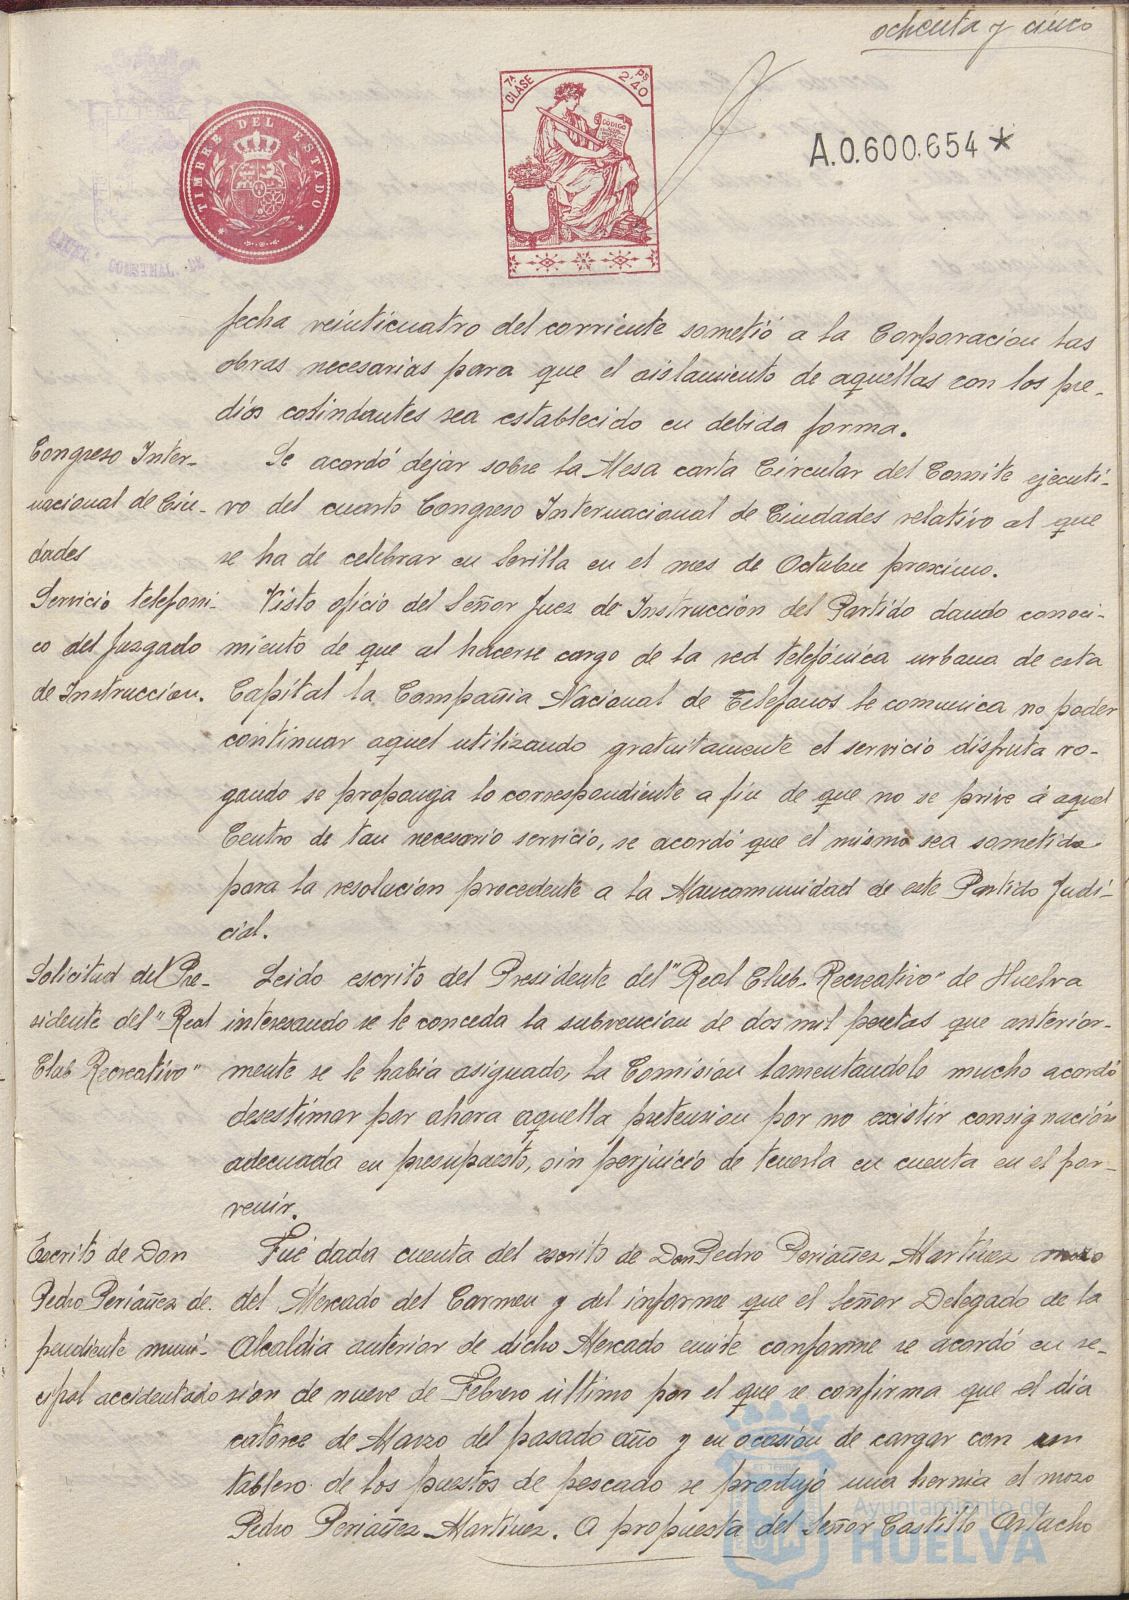 ochenta y cinco
TIMBRE DEL ESTADO
7ª CLASE
PS 2'40
CODIGO
A.0.600.654 *
fecha veinticuatro del corriente sometió a la Corporación las
obras necesarias para que el aislamiento de aquellas con los pre-
dios colindantes sea establecido en debida forma.
Congreso Inter-
nacional de Ciu-
dades
Se acordó dejar sobre la Mesa carta Circular del Comite ejecuti-
vo del cuarto Congreso Internacional de Ciudades relativo al que
se ha de celebrar en Sevilla en el mes de Octubre proximo.
Servicio telefoni-
co del Juzgado
de Instruccion.
Visto oficio del Señor Juez de Instrucción del Partido dando conoci-
miento de que al hacerse cargo de la red telefónica urbana de esta
Capital la Compañia Nacional de Telefonos le comunica no poder
continuar aquel utilizando gratuitamente el servicio disfruta ro-
gando se proponga lo correspondiente a fin de que no se prive á aquel
Centro de tan necesario servicio, se acordó que el mismo sea sometido
para la resolución procedente a la Mancomunidad de este Partido Judi-
cial.
Solicitud del Pre-
sidente del "Real
Club Recreativo"
Leido escrito del Presidente del "Real Club-Recreativo" de Huelva
interesando se le conceda la subvencion de dos mil pesetas que anterior-
mente se le habia asignado, la Comisión lamentandolo mucho acordó
desestimar por ahora aquella pretension por no existir consignación
adecuada en presupuesto, sin perjuicio de tenerla en cuenta en el por-
venir.
Escrito de Don
Pedro Periañez de-
pendiente muni-
cipal accidentado
Fué dada cuenta del escrito de Don Pedro Periañez Martinez mozo
del Mercado del Carmen y del informe que el Señor Delegado de la
Alcaldia anterior de dicho Mercado emite conforme se acordó en se-
sion de nueve de Febrero último por el que se confirma que el dia
catorce de Marzo del pasado año y en ocasión de cargar con un
tablero de los puestos de pescado se produjo una hernia el mozo
Pedro Periañez Martinez. A propuesta del Señor Castillo Artacho
Ayuntamiento de
HUELVA